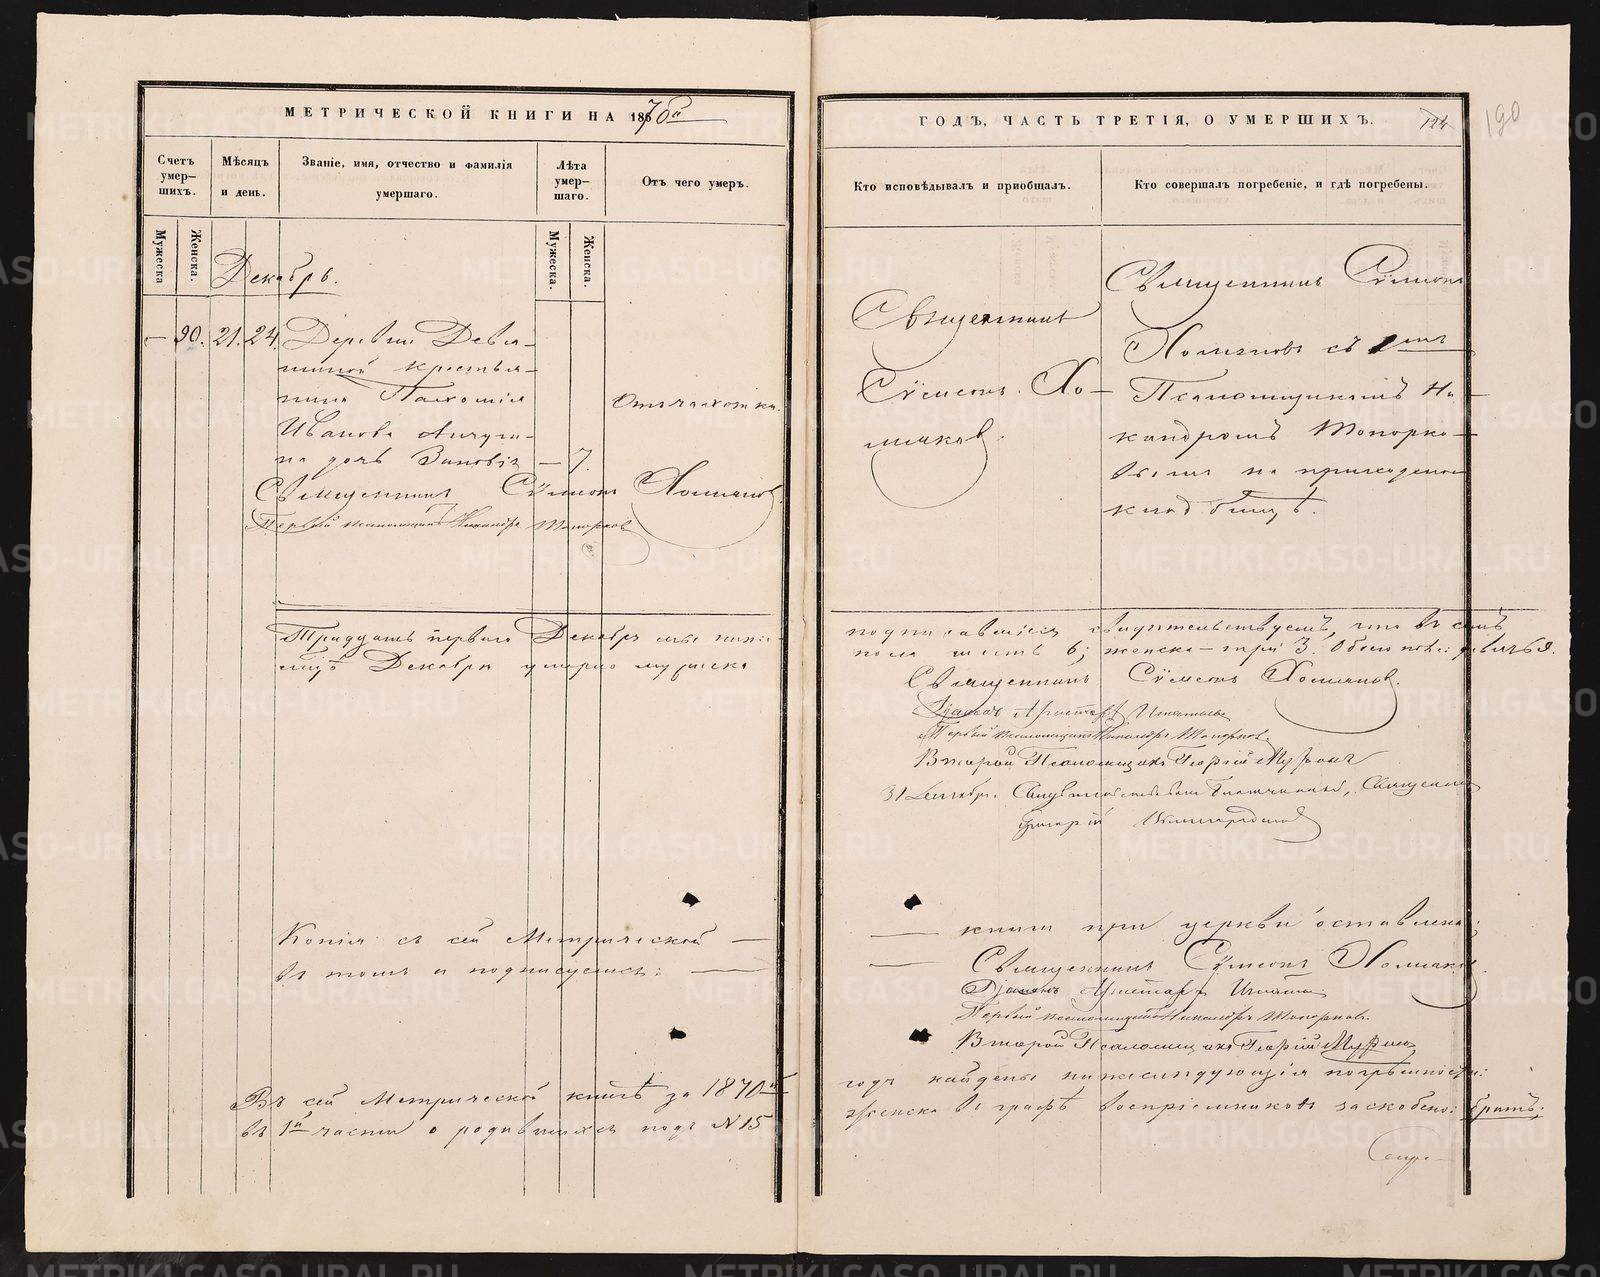 МЕТРИЧЕСКОЙ КНИГИ НА 1870й
ГОДЪ, ЧАСТЬ ТРЕТІЯ, О УМЕРШИХЪ.
124
190
Счетъ умер-
шихъ.
Мѣсяцъ
и день.
Званіе, имя, отчество и фамилія
умершаго.
Лѣта
умер-
шаго.
Отъ чего умеръ.
Кто исповѣдывалъ и приобщалъ.
Кто совершалъ погребеніе, и гдѣ погребены.
Мужеска
Женска.
Мужеска.
Женска.
Декабрь.
— 90. 21. 24.
Деревни Девя-
шиной крестья-
нина Пахомія
Иванова Ничуги-
на дочь Зиновія — 7.
Отъ чахотки.
Священникъ Сѵмеонъ Хомяковъ
Первый псаломщикъ Никандръ Топорковъ
Священникъ
Сѵмеонъ Хо-
мяковъ.
Священникъ Сѵмеонъ
Хомяковъ съ
Псаломщикомъ Ни-
кандромъ Топорко-
вымъ на приходскомъ
кладбищѣ.
Тридцать перваго Декабря мы ниже-
подписавшіеся свидѣтельствуемъ, что въ семъ
мцѣ Декабрѣ умерло мужеска
пола шесть 6; женска — три 3. Обоего пола: девять 9.
Священникъ Сѵмеонъ Хомяковъ.
Діаконъ Аристархъ Игнатьевъ
Первый псаломщикъ Никандръ Топорковъ.
Второй Псаломщикъ Георгій
31 Декабря. Свидѣтельствовалъ Благочинный, Священникъ
Копія съ сей Метрической —
— книги при церкви оставлена;
въ томъ и подписуемся: —
— Священникъ Сѵмеонъ Хомяковъ
Діаконъ Аристархъ Игнатьевъ
Первый псаломщикъ Никандръ Топорковъ.
Второй Псаломщикъ Георгій
Въ сей Метрической книгѣ за 1870й
годъ найдены нижеслѣдующія погрѣшности:
въ 1й части о родившихся подъ № 15
женска въ графѣ воспріемниковъ заскоблено: братъ;